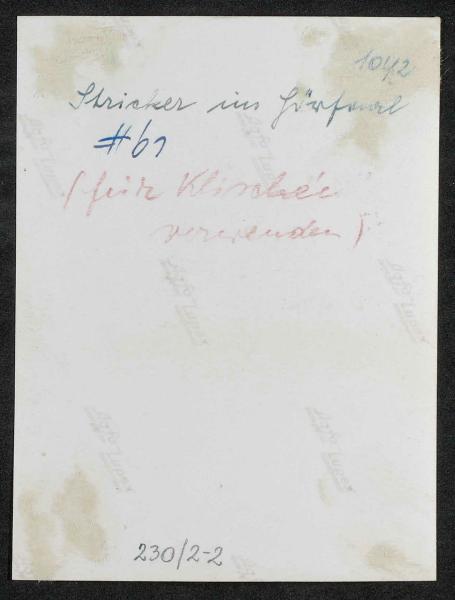 1042
Stricker im Hörsaal
#61
(für Klischée
verwenden)
Agfa Lupex
Agfa Lupex
Agfa Lupex
Agfa Lupex
Agfa Lupex
230/2-2